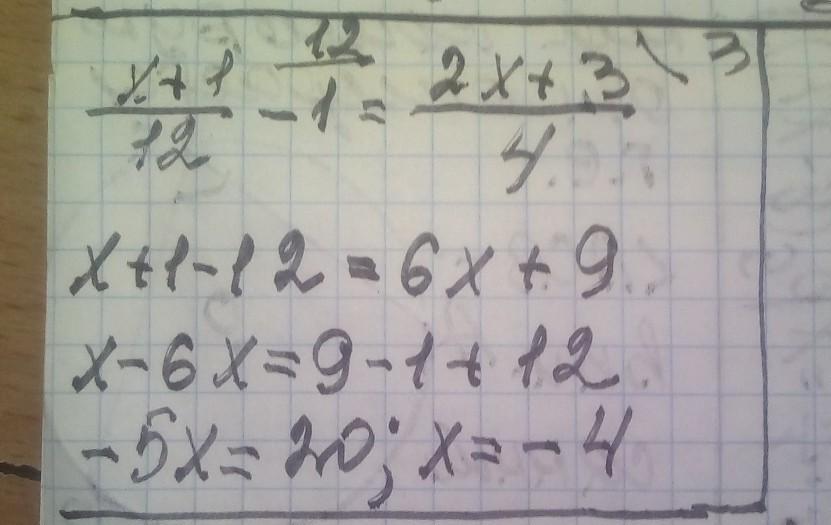 (x+1)/12 - 1 \12 = (2x+3)/4 \3
x+1-12=6x+9
x-6x=9-1+12
-5x=20; x=-4